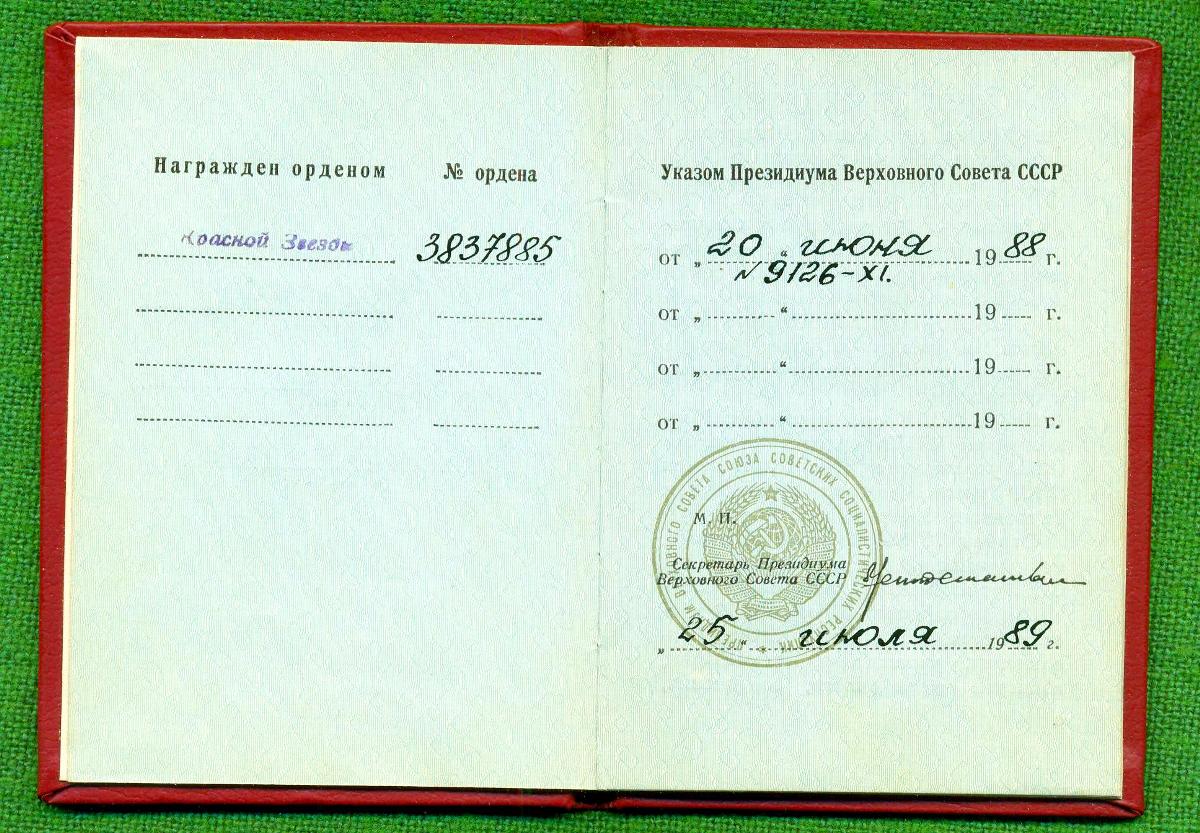 Награжден орденом
№ ордена
Красной Звезды
3837885
Указом Президиума Верховного Совета СССР
от „ 20 “ июня 1988 г.
№ 9126-XI.
от „ “ 19 г.
от „ “ 19 г.
от „ “ 19 г.
ПРЕЗИДИУМ ВЕРХОВНОГО СОВЕТА СОЮЗА СОВЕТСКИХ СОЦИАЛИСТИЧЕСКИХ РЕСПУБЛИК
М. П.
Секретарь Президиума
Верховного Совета СССР
„ 25 “ июля 1989 г.